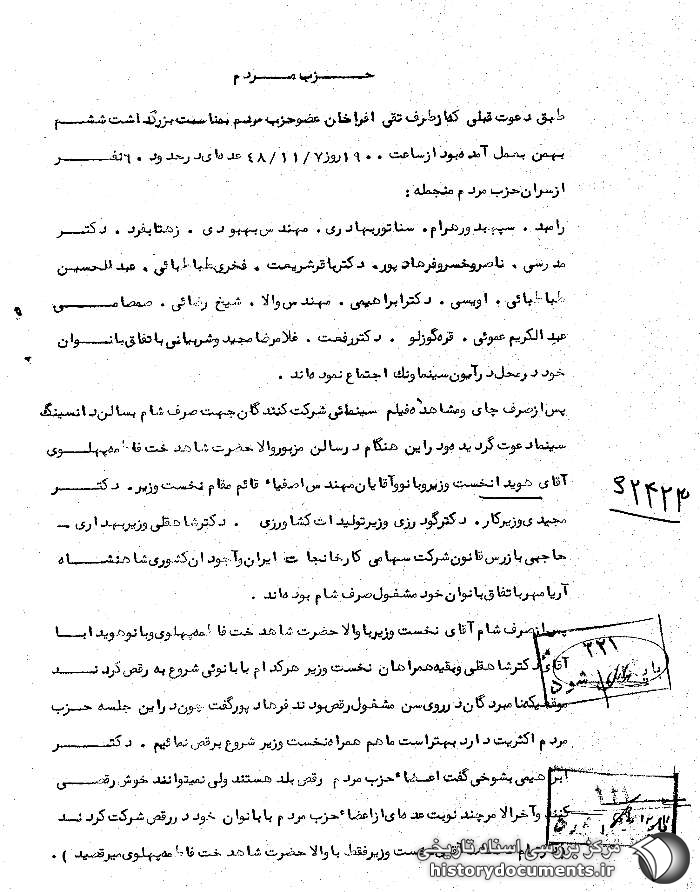 حزب مردم
طبق دعوت قبلی که از طرف تقی اغراخان عضو حزب مردم بمناسبت بزرگداشت ششم
بهمن بعمل آمده بود از ساعت ۱۹۰۰ روز ۴۸/۱۱/۷ عده‌ای در حدود ۶۰ نفر
از سران حزب مردم منجمله :
رامبد . سپهبد ورهرام . سناتور بهادری . مهندس بهبودی . زهتابفرد . دکتر
مدرسی . ناصر و خسرو فرهادپور . دکتر باقر شریعت . فخری طباطبائی . عبدالحسین
طباطبائی . اویسی . دکتر ابراهیمی . مهندس والا . شیخ رضائی . صمصامی
عبدالکریم عموئی . قره‌گوزلو . دکتر رفعت . غلامرضا مجید و شربیانی باتفاق بانوان
خود در محل درآیون سینما ونک اجتماع نموده‌اند .
پس از صرف چای و مشاهده فیلم سینمائی شرکت کنندگان جهت صرف شام بسالن دانسینگ
سینما دعوت گردیده بود در این هنگام در سالن مزبور والا حضرت شاهدخت فاطمه پهلوی
آقای هویدا نخست وزیر و بانو و آقایان مهندس اصفیاء قائم مقام نخست وزیر . دکتر
۳۲۴۲۳
مجیدی وزیر کار . دکتر گودرزی وزیر تولیدات کشاورزی . دکتر شاهقلی وزیر بهداری -
حاجبی بازرس قانون شرکت سهامی کارخانجات ایران و آجودان کشوری شاهنشاه
آریامهر باتفاق بانوان خود مشغول صرف شام بوده‌اند .
پس از صرف شام آقای نخست وزیر با والا حضرت شاهدخت فاطمه پهلوی و بانو هویدا با
آقای دکتر شاهقلی و بقیه همراهان نخست وزیر هر کدام با بانوئی شروع به رقص کردند
۳۲۱
شود
موقعیکه نامبردگان در روی سن مشغول رقص بودند فرهادپور گفت چون در این جلسه حزب
مردم اکثریت دارد بهتر است ما هم همراه نخست وزیر شروع برقص نمائیم . دکتر
ابراهیمی بشوخی گفت اعضاء حزب مردم رقص بلد هستند ولی نمیتوانند خوش رقصی
کنند و آخرالامر چند نوبت عده‌ای از اعضاء حزب مردم با بانوان خود در رقص شرکت کردند
نخست وزیر فقط با والا حضرت شاهدخت فاطمه پهلوی میرقصید ) .
مرکز بررسی اسناد تاریخی
historydocuments.ir